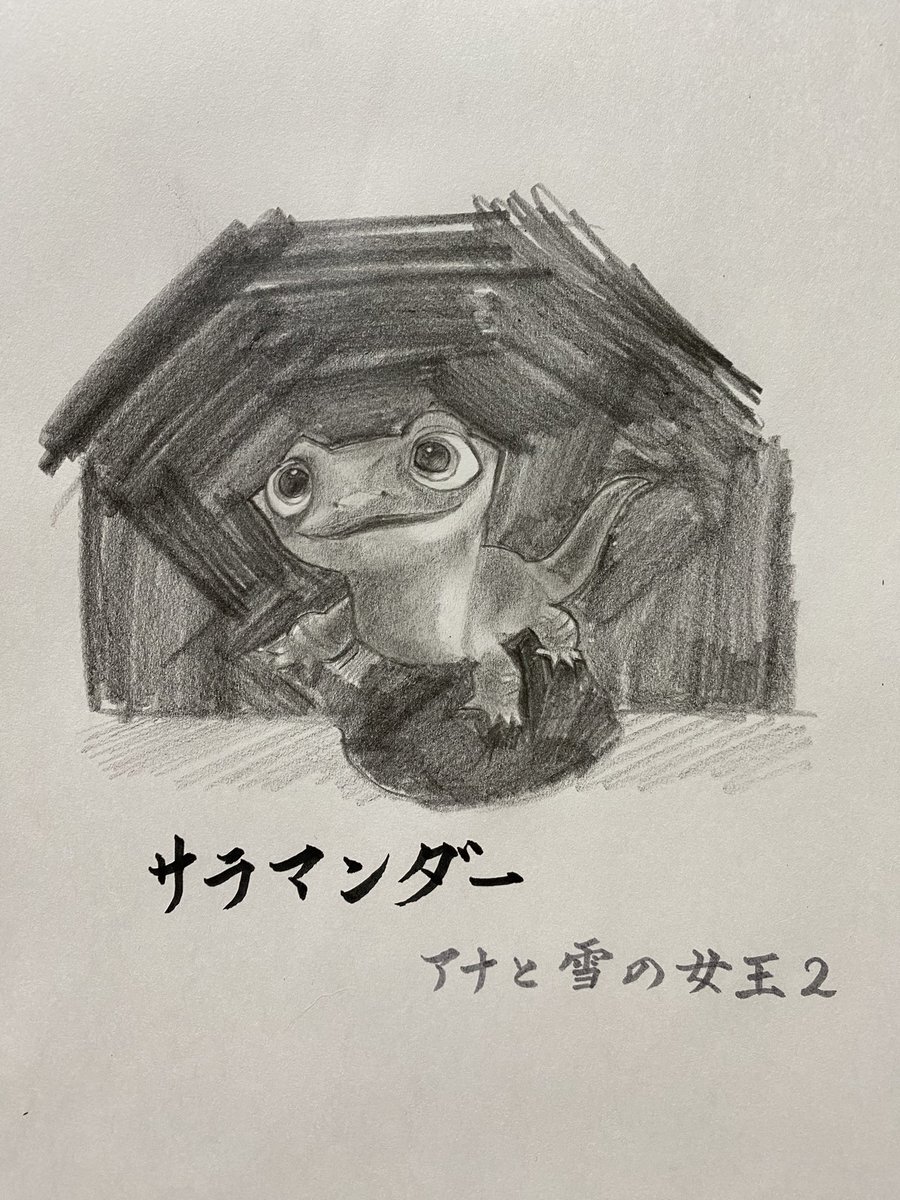 サラマンダー
アナと雪の女王2